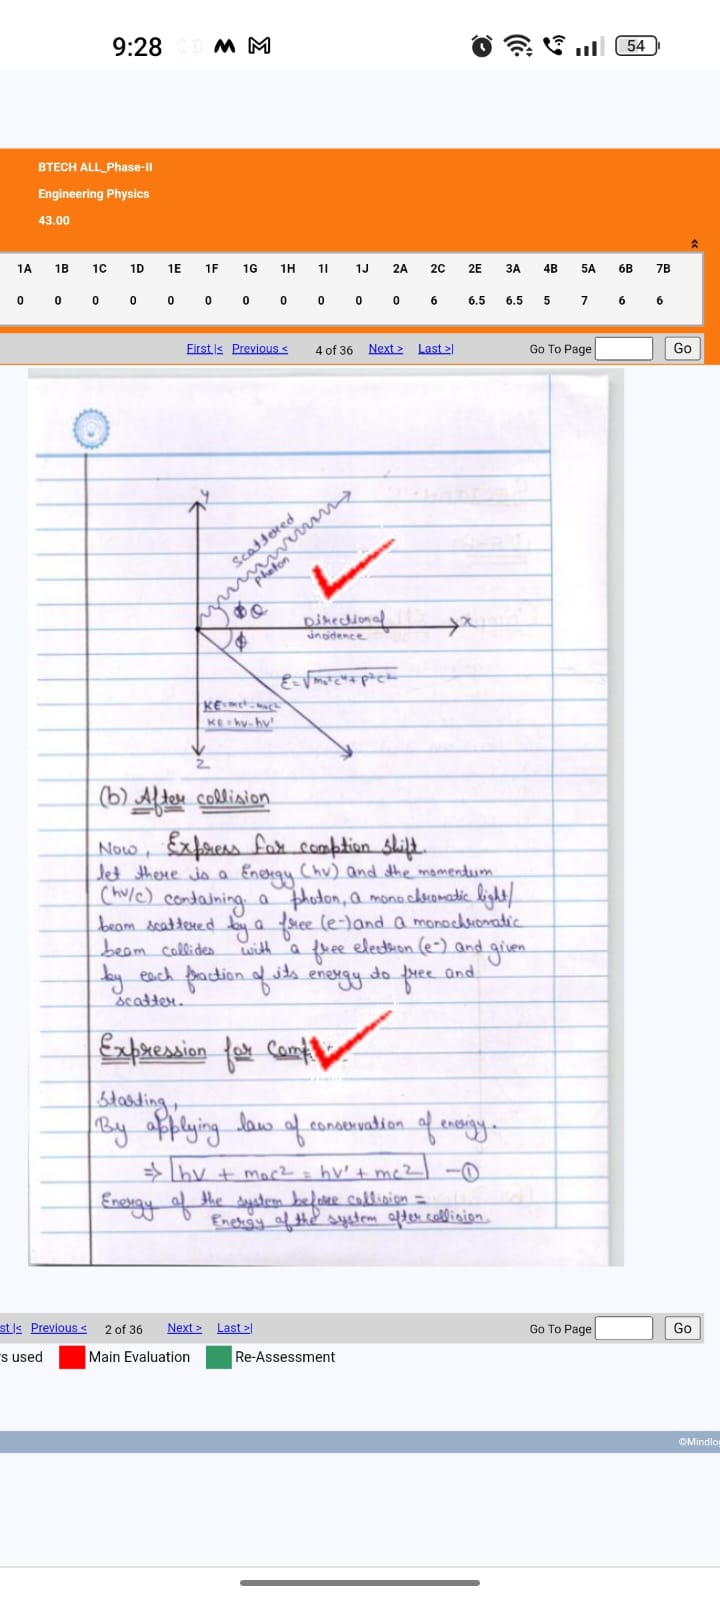 9:28
54
BTECH ALL_Phase-II
Engineering Physics
43.00
1A 1B 1C 1D 1E 1F 1G 1H 1I 1J 2A 2C 2E 3A 4B 5A 6B 7B
0 0 0 0 0 0 0 0 0 0 0 6 6.5 6.5 5 7 6 6
First |< Previous < 4 of 36 Next > Last >| Go To Page Go
y
scattered
photon
θ
Directional x
incidence
ϕ
E=√m₀²c⁴+p²c²
KE=mc²-m₀c²
KE=hν-hν'
z
(b) After collision
Now, Express for comption shift.
let there is a Energy (hν) and the momentum
(hν/c) containing a photon, a monochromatic light/
beam scattered by a free (e-) and a monochromatic
beam collides with a free electron (e-) and given
by each fraction of its energy to free and
scatter.
Expression for Comp
Starting,
By applying law of conservation of energy.
⇒ hν + m₀c² = hν' + mc² —①
Energy of the system before collision =
Energy of the system after collision.
st |< Previous < 2 of 36 Next > Last >| Go To Page Go
rs used Main Evaluation Re-Assessment
©Mindlo